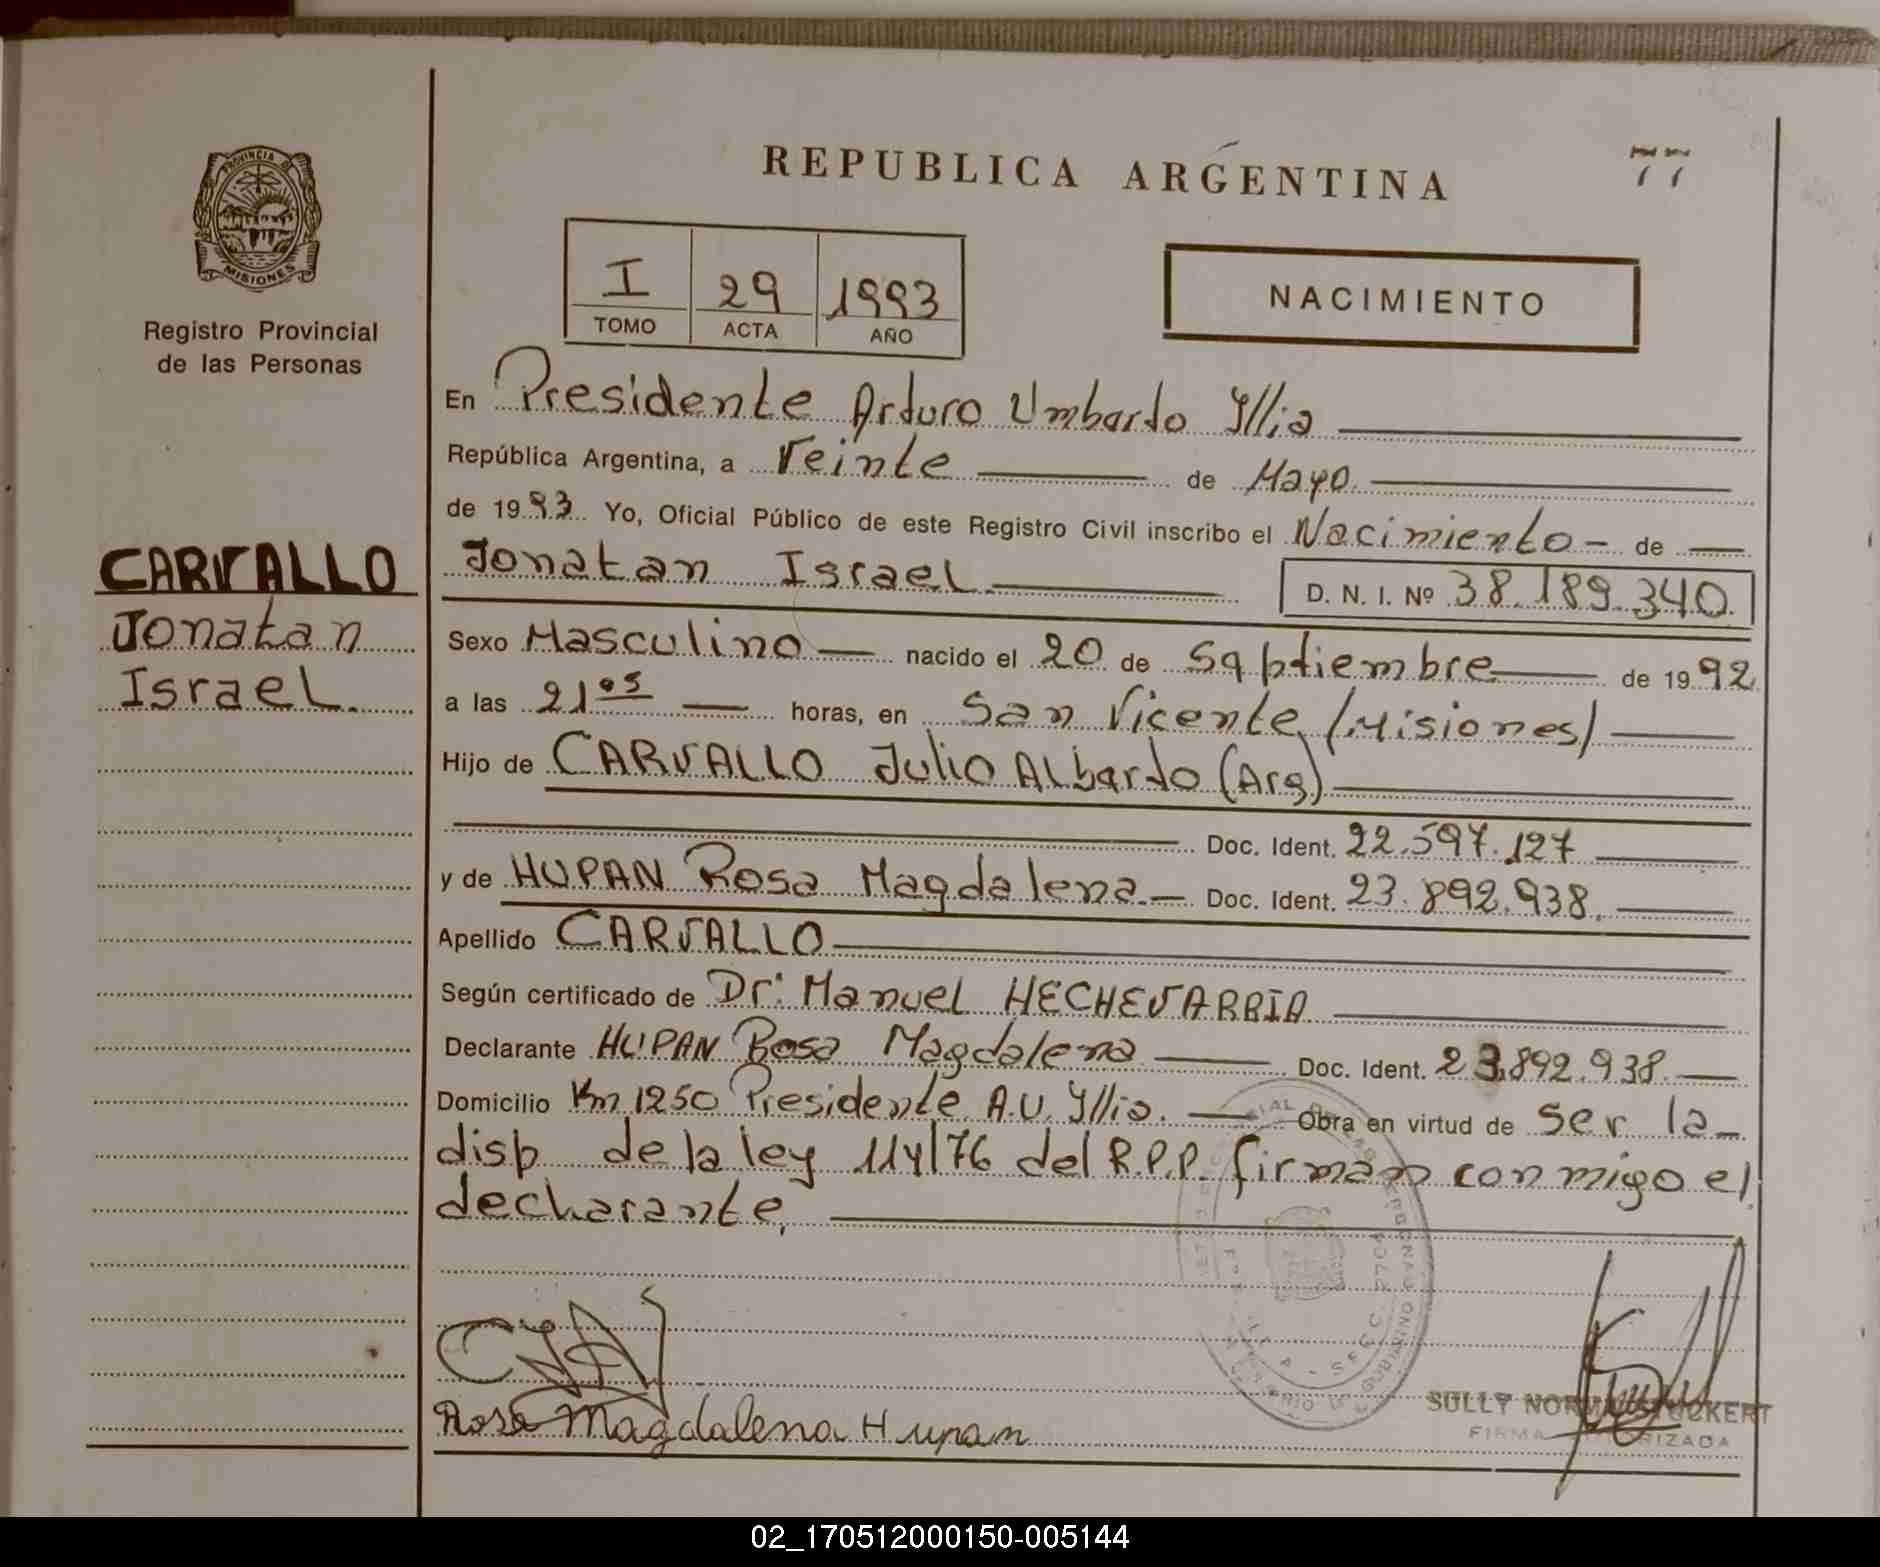 PROVINCIA DE
MISIONES
Registro Provincial
de las Personas
CARVALLO
Jonatan
Israel.
REPUBLICA ARGENTINA
77
I 29 1993
TOMO ACTA AÑO
NACIMIENTO
En Presidente Arturo Umbardo Yllia
República Argentina, a Veinte de Mayo
de 1993 Yo, Oficial Público de este Registro Civil inscribo el Nacimiento - de
Jonatan Israel D. N. I. Nº 38.189.340
Sexo Masculino nacido el 20 de Septiembre de 1992
a las 21 05 horas, en San Vicente /Misiones/
Hijo de CARVALLO Julio Albardo (Arg)
Doc. Ident. 22.597.127
y de HUPAN Rosa Magdalena. Doc. Ident. 23.892.938.
Apellido CARVALLO
Según certificado de Dr: Manuel HECHEVARRIA
Declarante HUPAN Rosa Magdalena Doc. Ident. 23.892.938.
Domicilio Km 1250 Presidente A.U. Yllia. Obra en virtud de ser la
disp de la ley 114/76 del R.P.P. firman conmigo el
decharante,
CJA
Rosa Magdalena Hupan
SULLY NORMA
FIRMA AUTORIZADA
02_170512000150-005144